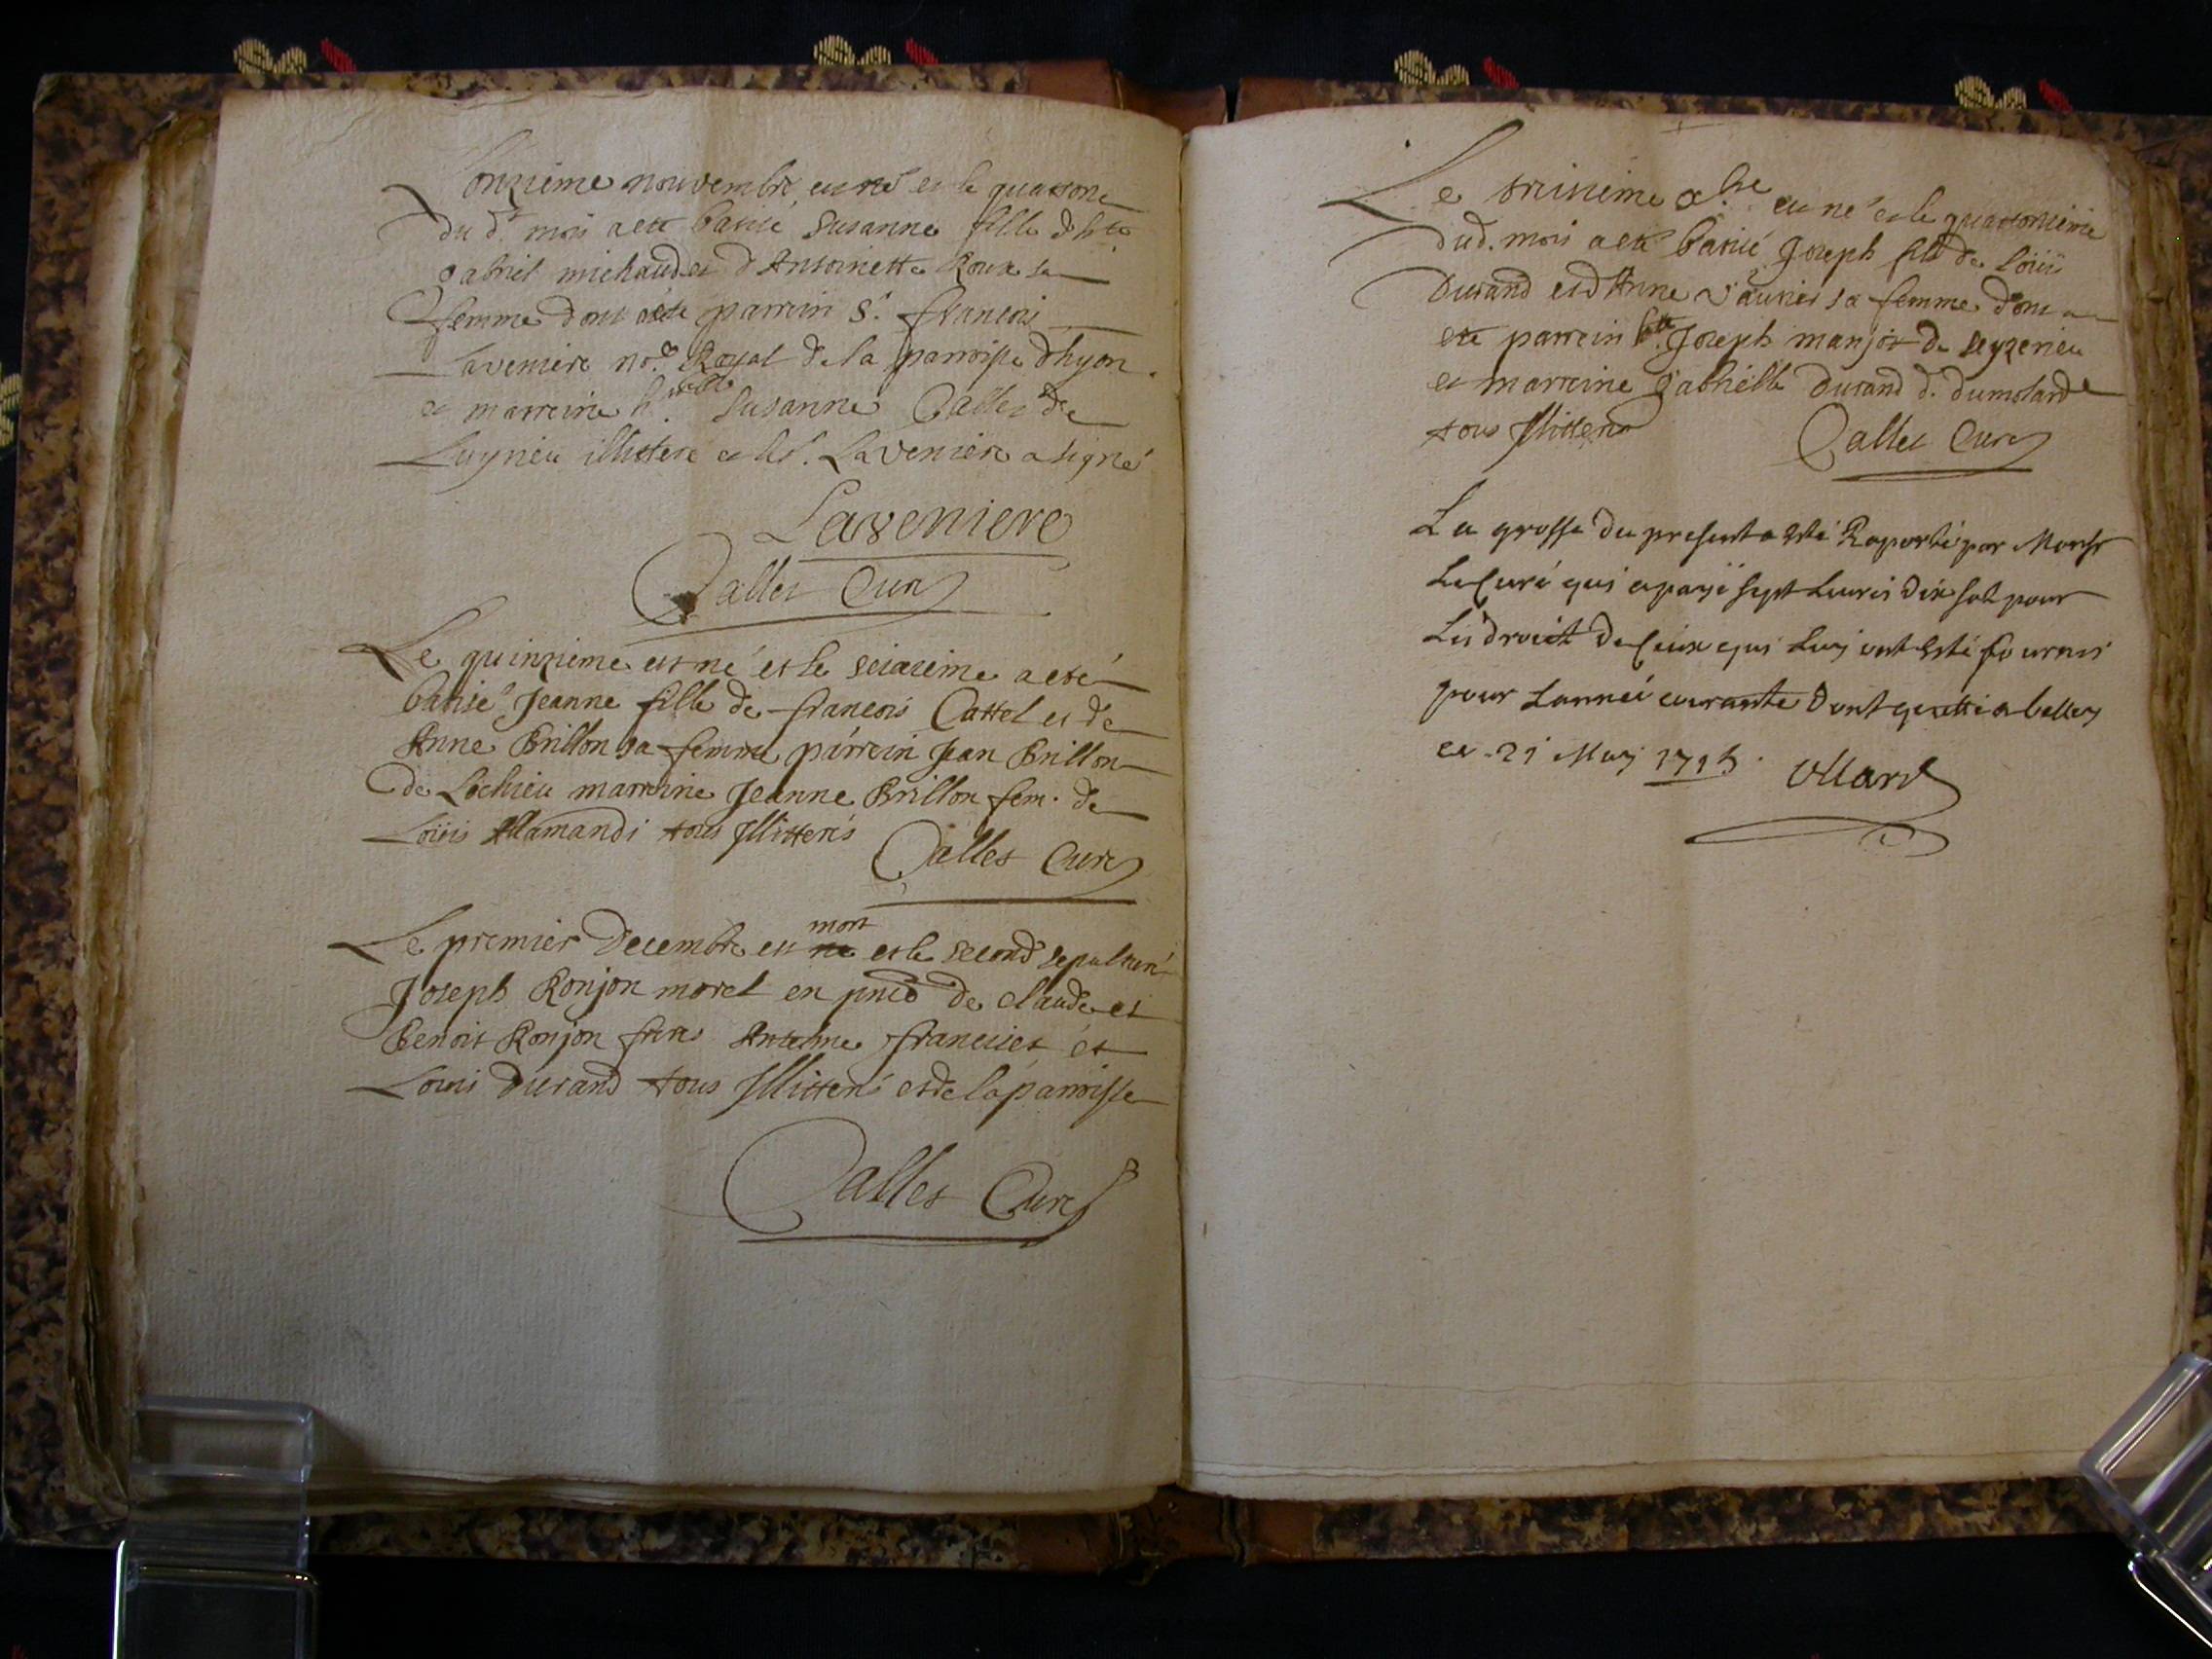 Lonzieme nouvembre est né et le quatorze
du d.t mois a esté batisé Susanne fille d'h.te
gabriel michaud et d'Antoinette Roux sa
femme dont a été parrein S.r francois
Laveniere no.re Royal de la parroisse d'hyon
et marreine h. Susanne Pallet de
Luynieu illittere et led. S.r Laveniere a signé
Laveniere
Pallet Curé
Le quinzieme est né et le seizieme a eté
batisé Jeanne fille de francois Cattel et de
Anne Brillon sa femme parrein Jean Brillon
de Lochieu marreine Jeanne Brillon fem. de
Loüis Allamandi tous Illitterés
Pallet Curé
Le premier Decembre est mort et le second sepulturé
Joseph Ronjon morel en pnce de claude et
Benoit Ronjon freres Antelme francillet et
Louis Durand tous Illitterés et de la parroisse
Pallet Curé
Le treisieme x.bre est né et le quatorsieme
dud. mois a eté batisé Joseph fils de Loüis
Durand et d'Anne sa femme dont a
eté parrein h.te Joseph manjot de seyzerieu
et marreine Gabrielle Durand d. dumolard
tous Illitteres
Pallet Curé
La grosse du present a esté Raporté par Monsr
Le Curé qui a payé sept Livres dix sols pour
Les droict de Ceux qui Luy ont esté fournis
pour Lannéé courante Dont quitté a belley
ce 21 May 1715.
Ullard